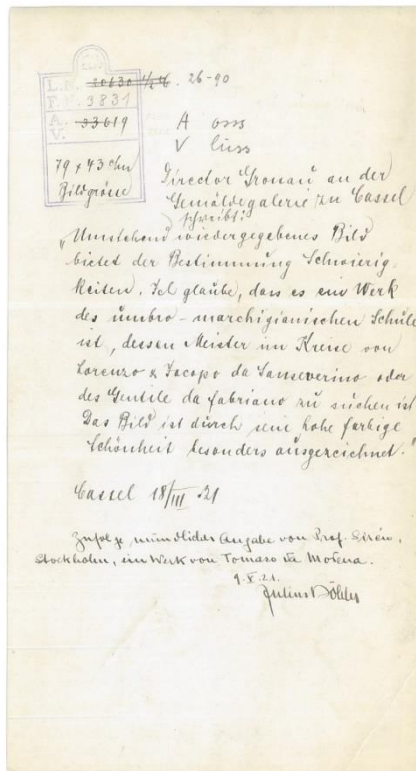 L.N. 20630 1/2 26-90
P.N. 3831
A. 33619
V.
A osss
V luss
79 x 43 chn
Bildgrösse
Director Gronau an der
Gemäldegalerie zu Cassel
schreibt:
„Umstehend wiedergegebenes Bild
bietet der Bestimmung Schwierig-
keiten. Ich glaube, dass es ein Werk
des umbro-marchigianischen Schule
ist, dessen Meister im Kreise von
Lorenzo & Jacopo da Sanseverino oder
des Gentile da fabriano zu suchen ist
Das Bild ist durch seine hohe farbige
Schönheit besonders ausgezeichnet."
Cassel 18/III .21
Zufolge mündlicher Angabe von Prof. Sirén,
Stockholm, ein Werk von Tomaso da Modena.
9.V.21.
Julius Böhler